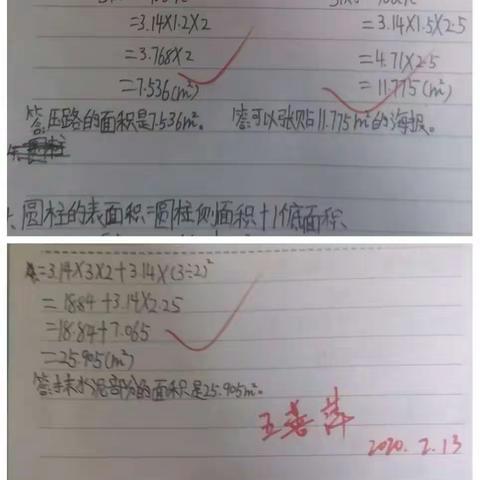 =3.14×1.2×2
=3.14×1.5×2.5
=3.768×2
=4.71×2.5
=7.536(m²)
=11.775(m²)
答:压路的面积是7.536m²。
答:可以张贴11.775m²的海报。
圆柱的表面积=圆柱侧面积+1个底面积
=3.14×3×2+3.14×(3÷2)²
=18.84+3.14×2.25
=18.84+7.065
=25.905(m²)
答:抹水泥部分的面积是25.905m²。
2020.2.13